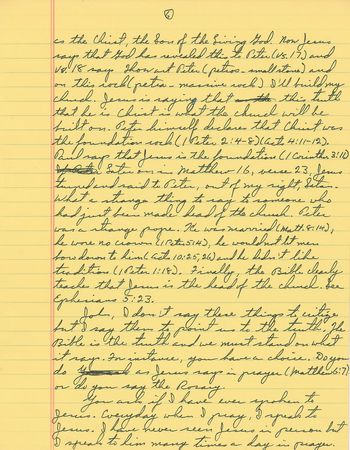 6
as the Christ, the Son of the Living God. Now Jesus
says that God has revealed this to Peter (vs. 17) and
vs. 18 say Thou art Peter (petros - small stone) and
on this rock (petra - massive rock) I'll build my
church. Jesus is saying that this truth
that he is Christ is what the church will be
built on. Peter himself declares that Christ was
the foundation rock (1 Peter 2:4-8) (Acts 4:11-12).
Paul says that Jesus is the foundation (1 Corinth. 3:11)
Later on in Matthew 16, verse 23, Jesus
turned and said to Peter, out of my sight Satan.
What a strange thing to say to someone who
had just been made head of the church. Peter
was a strange pope. He was married (Matt. 8:14),
he wore no crown (1 Peter 5:4), he wouldn't let men
bow down to him (Acts 10:25,26) and he didn't like
tradition (1 Peter 1:18). Finally, the Bible clearly
teaches that Jesus is the head of the church. See
Ephesians 5:23.
I don't say these things to critize
but I say them to point us to the truth. The
Bible is the truth and we must stand on what
it says. For instance, you have a choice. Do you
do as Jesus says in prayer (Matthew 6:7)
or do you say the Rosary.
You ask if I have ever spoken to
Jesus. Everyday when I pray, I speak to
Jesus. I have never seen Jesus in person but
I speak to him many times a day in prayer.